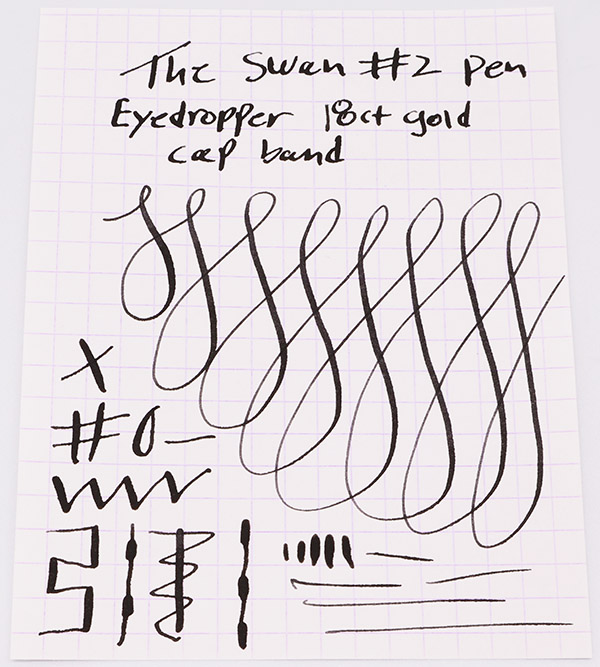 The Swan #2 Pen
Eyedropper 18ct gold
cap band
X
#0-